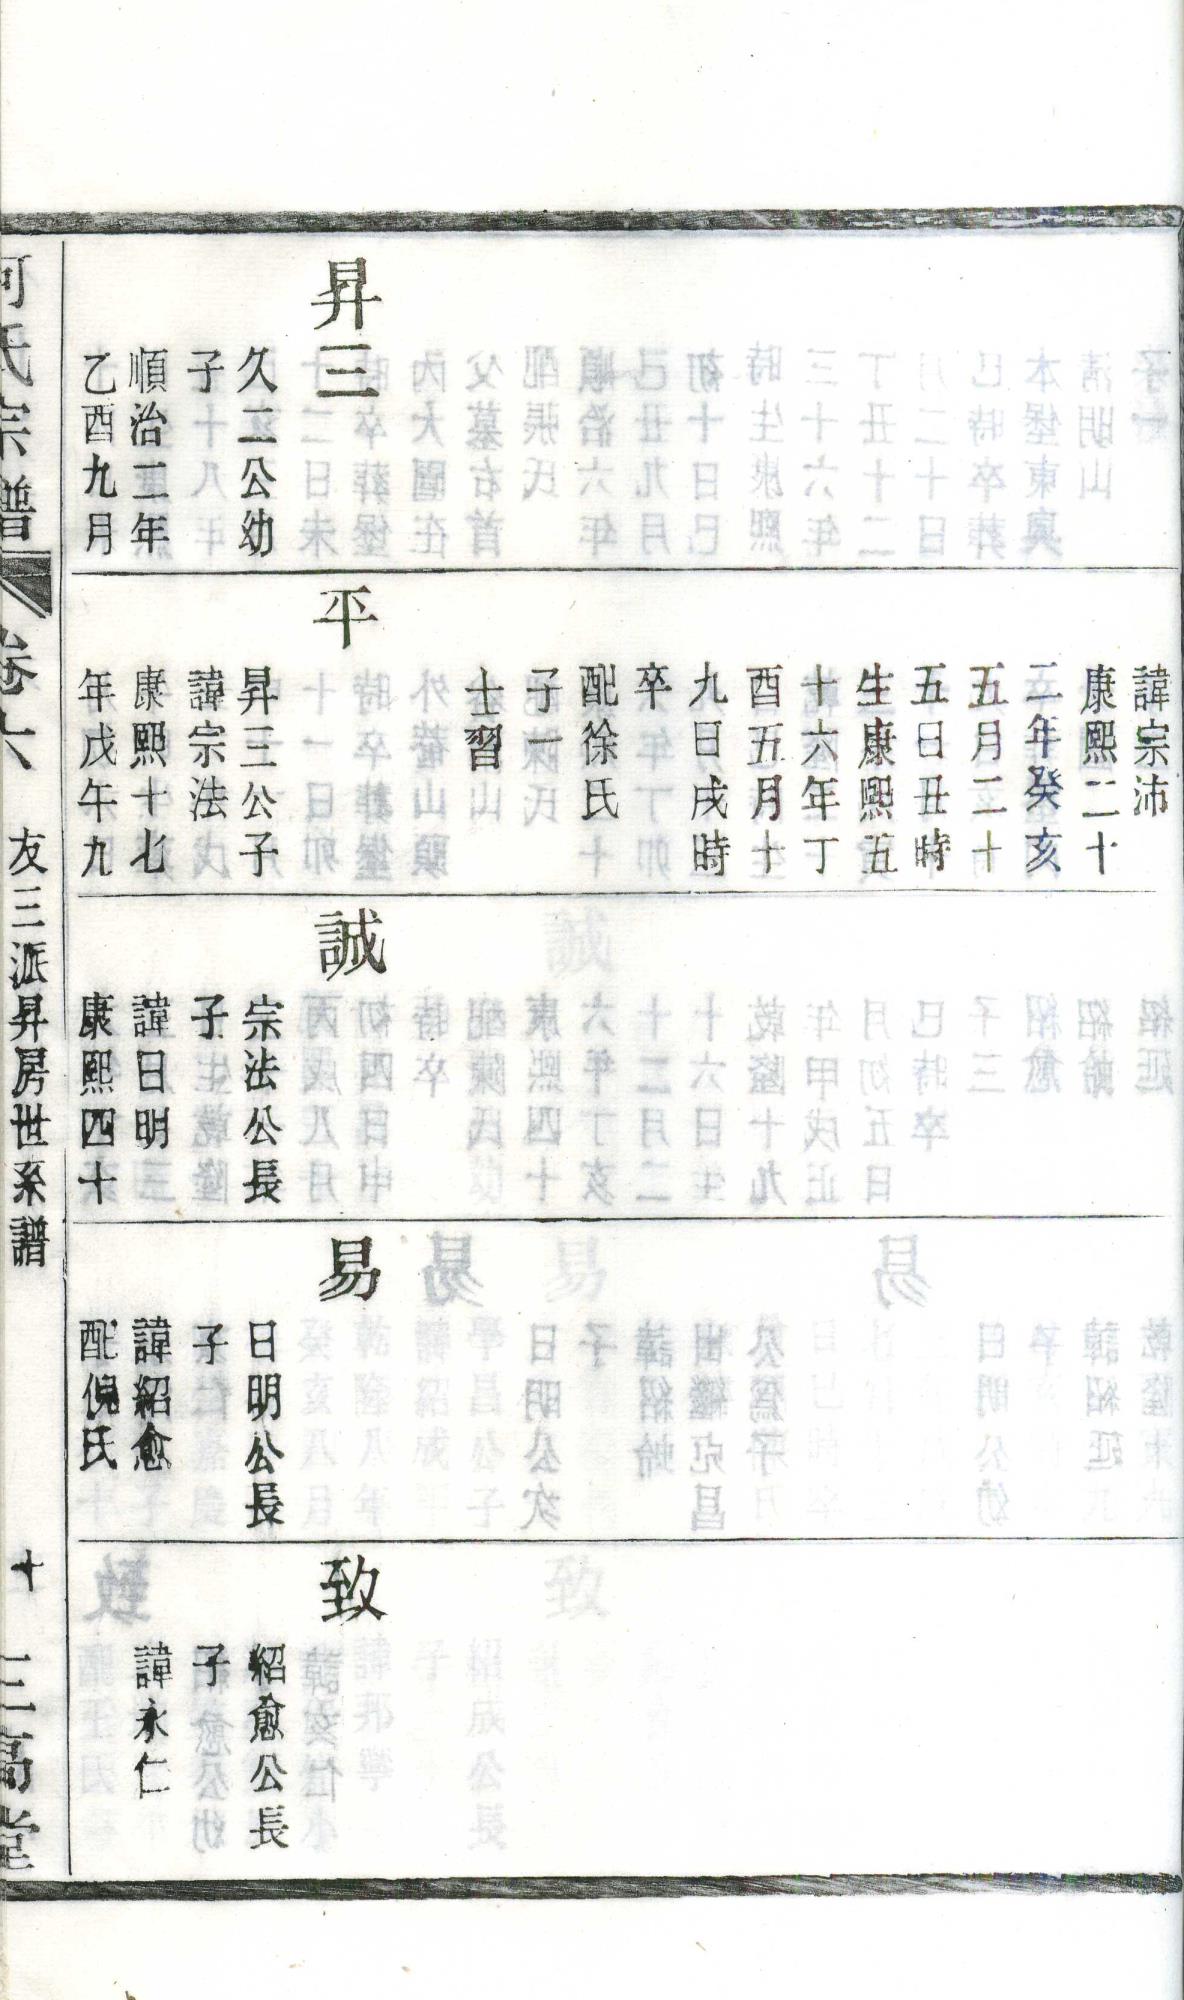 昇三
久二公幼
子
順治二年
乙酉九月
諱宗沛
康熙二十
二年癸亥
五月二十
五日丑時
生康熙五
十六年丁
酉五月十
九日戌時
卒
配徐氏
子一
士習
平
昇三公子
諱宗法
康熙十七
年戊午九
誠
宗法公長
子
諱日明
康熙四十
易
日明公長
子
諱紹愈
配倪氏
致
紹愈公長
子
諱永仁
氏宗譜
卷六
友三派昇房世系譜
十
三高堂